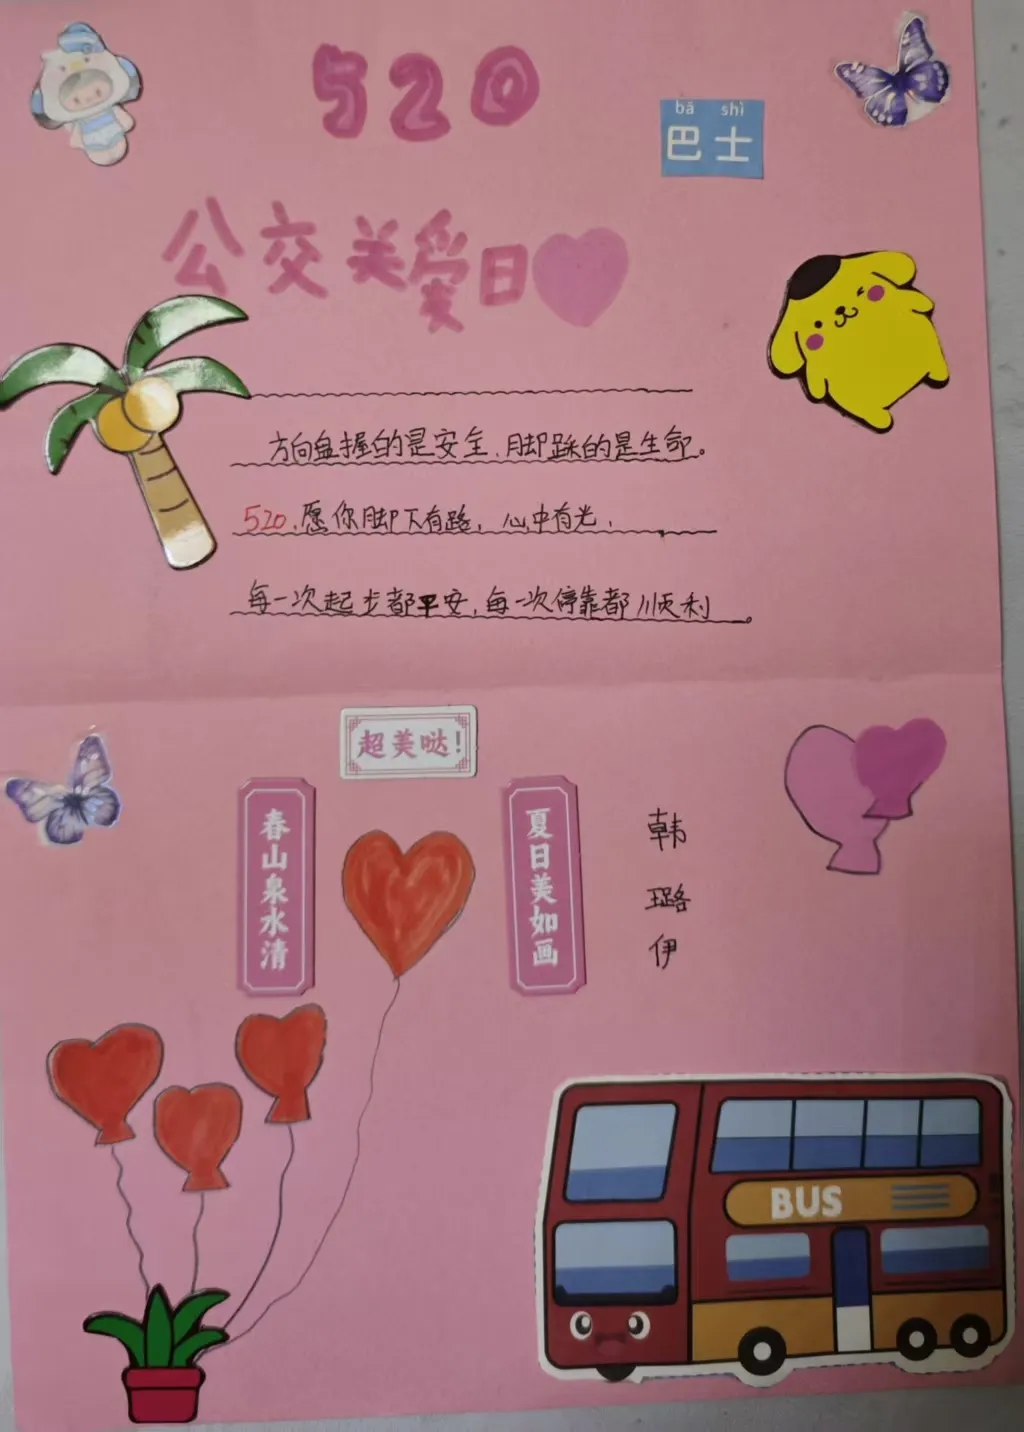 520
bā shì
巴士
公交关爱日
方向盘握的是安全,脚踩的是生命。
520,愿你脚下有路,心中有光,
每一次起步都平安,每一次停靠都顺利。
超美哒!
春山泉水清
夏日美如画
韩璐伊
BUS